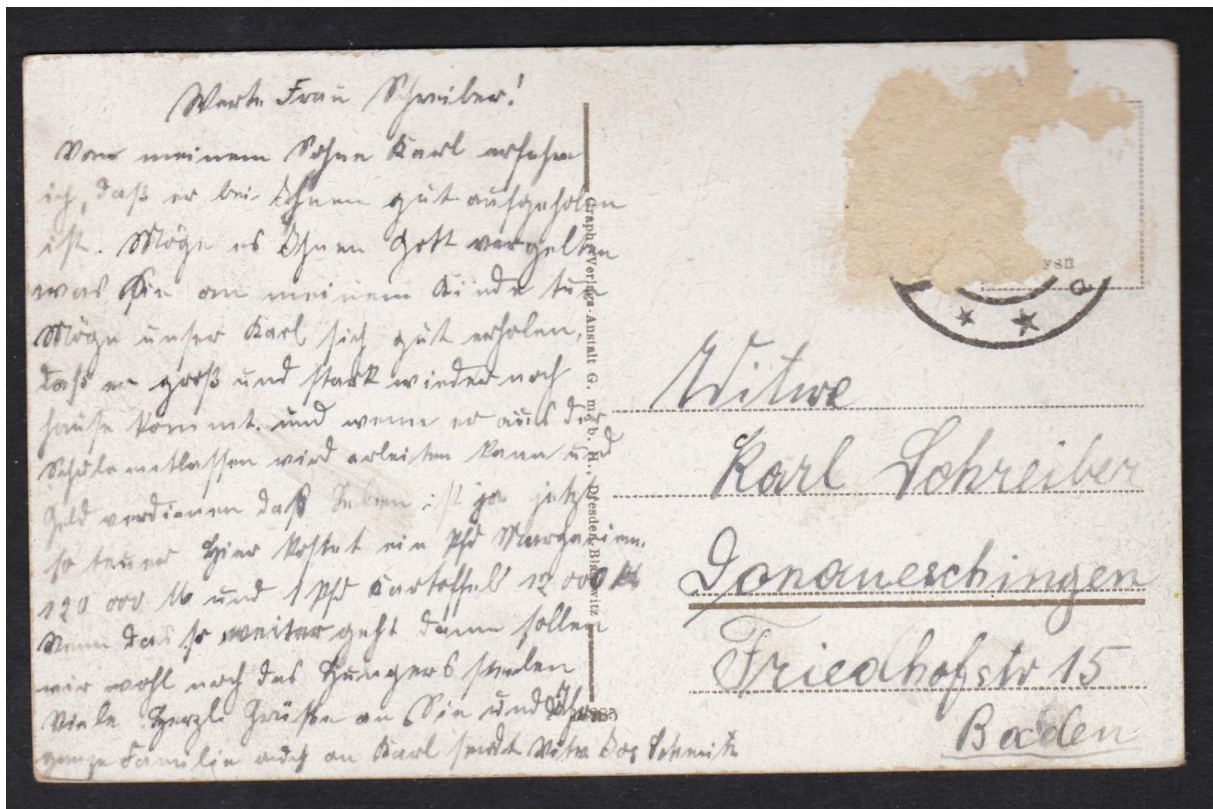 Werte Frau Schreiber!
Von meinem Sohne Karl erfahre
ich, daß er bei Ihnen gut aufgehoben
ist. Möge es Ihnen Gott vergelten
was Sie an meinem Kinde tun
Möge unser Karl sich gut erholen,
daß er groß und stark wieder nach
hause kommt. und wenn er aus der
Schule entlassen wird arbeiten kann und
Geld verdienen daß Leben ist ja jetzt
so teuer Hier kostet ein Pfd Margarine
120 000 M und 1 Pfd Kartoffel 12 000 M
Wenn das so weiter geht dann sollen
wir wohl noch des Hungers sterben
Viele Herzl. Grüße an Sie und Ihre
ganze Familie auch an Karl sendet Witw. Jos Schmitz
Graph. Verlags-Anstalt G. m. b. H., Dresden-Blasewitz
Witwe
Karl Schreiber
Donaueschingen
Friedhofstr 15
Baden